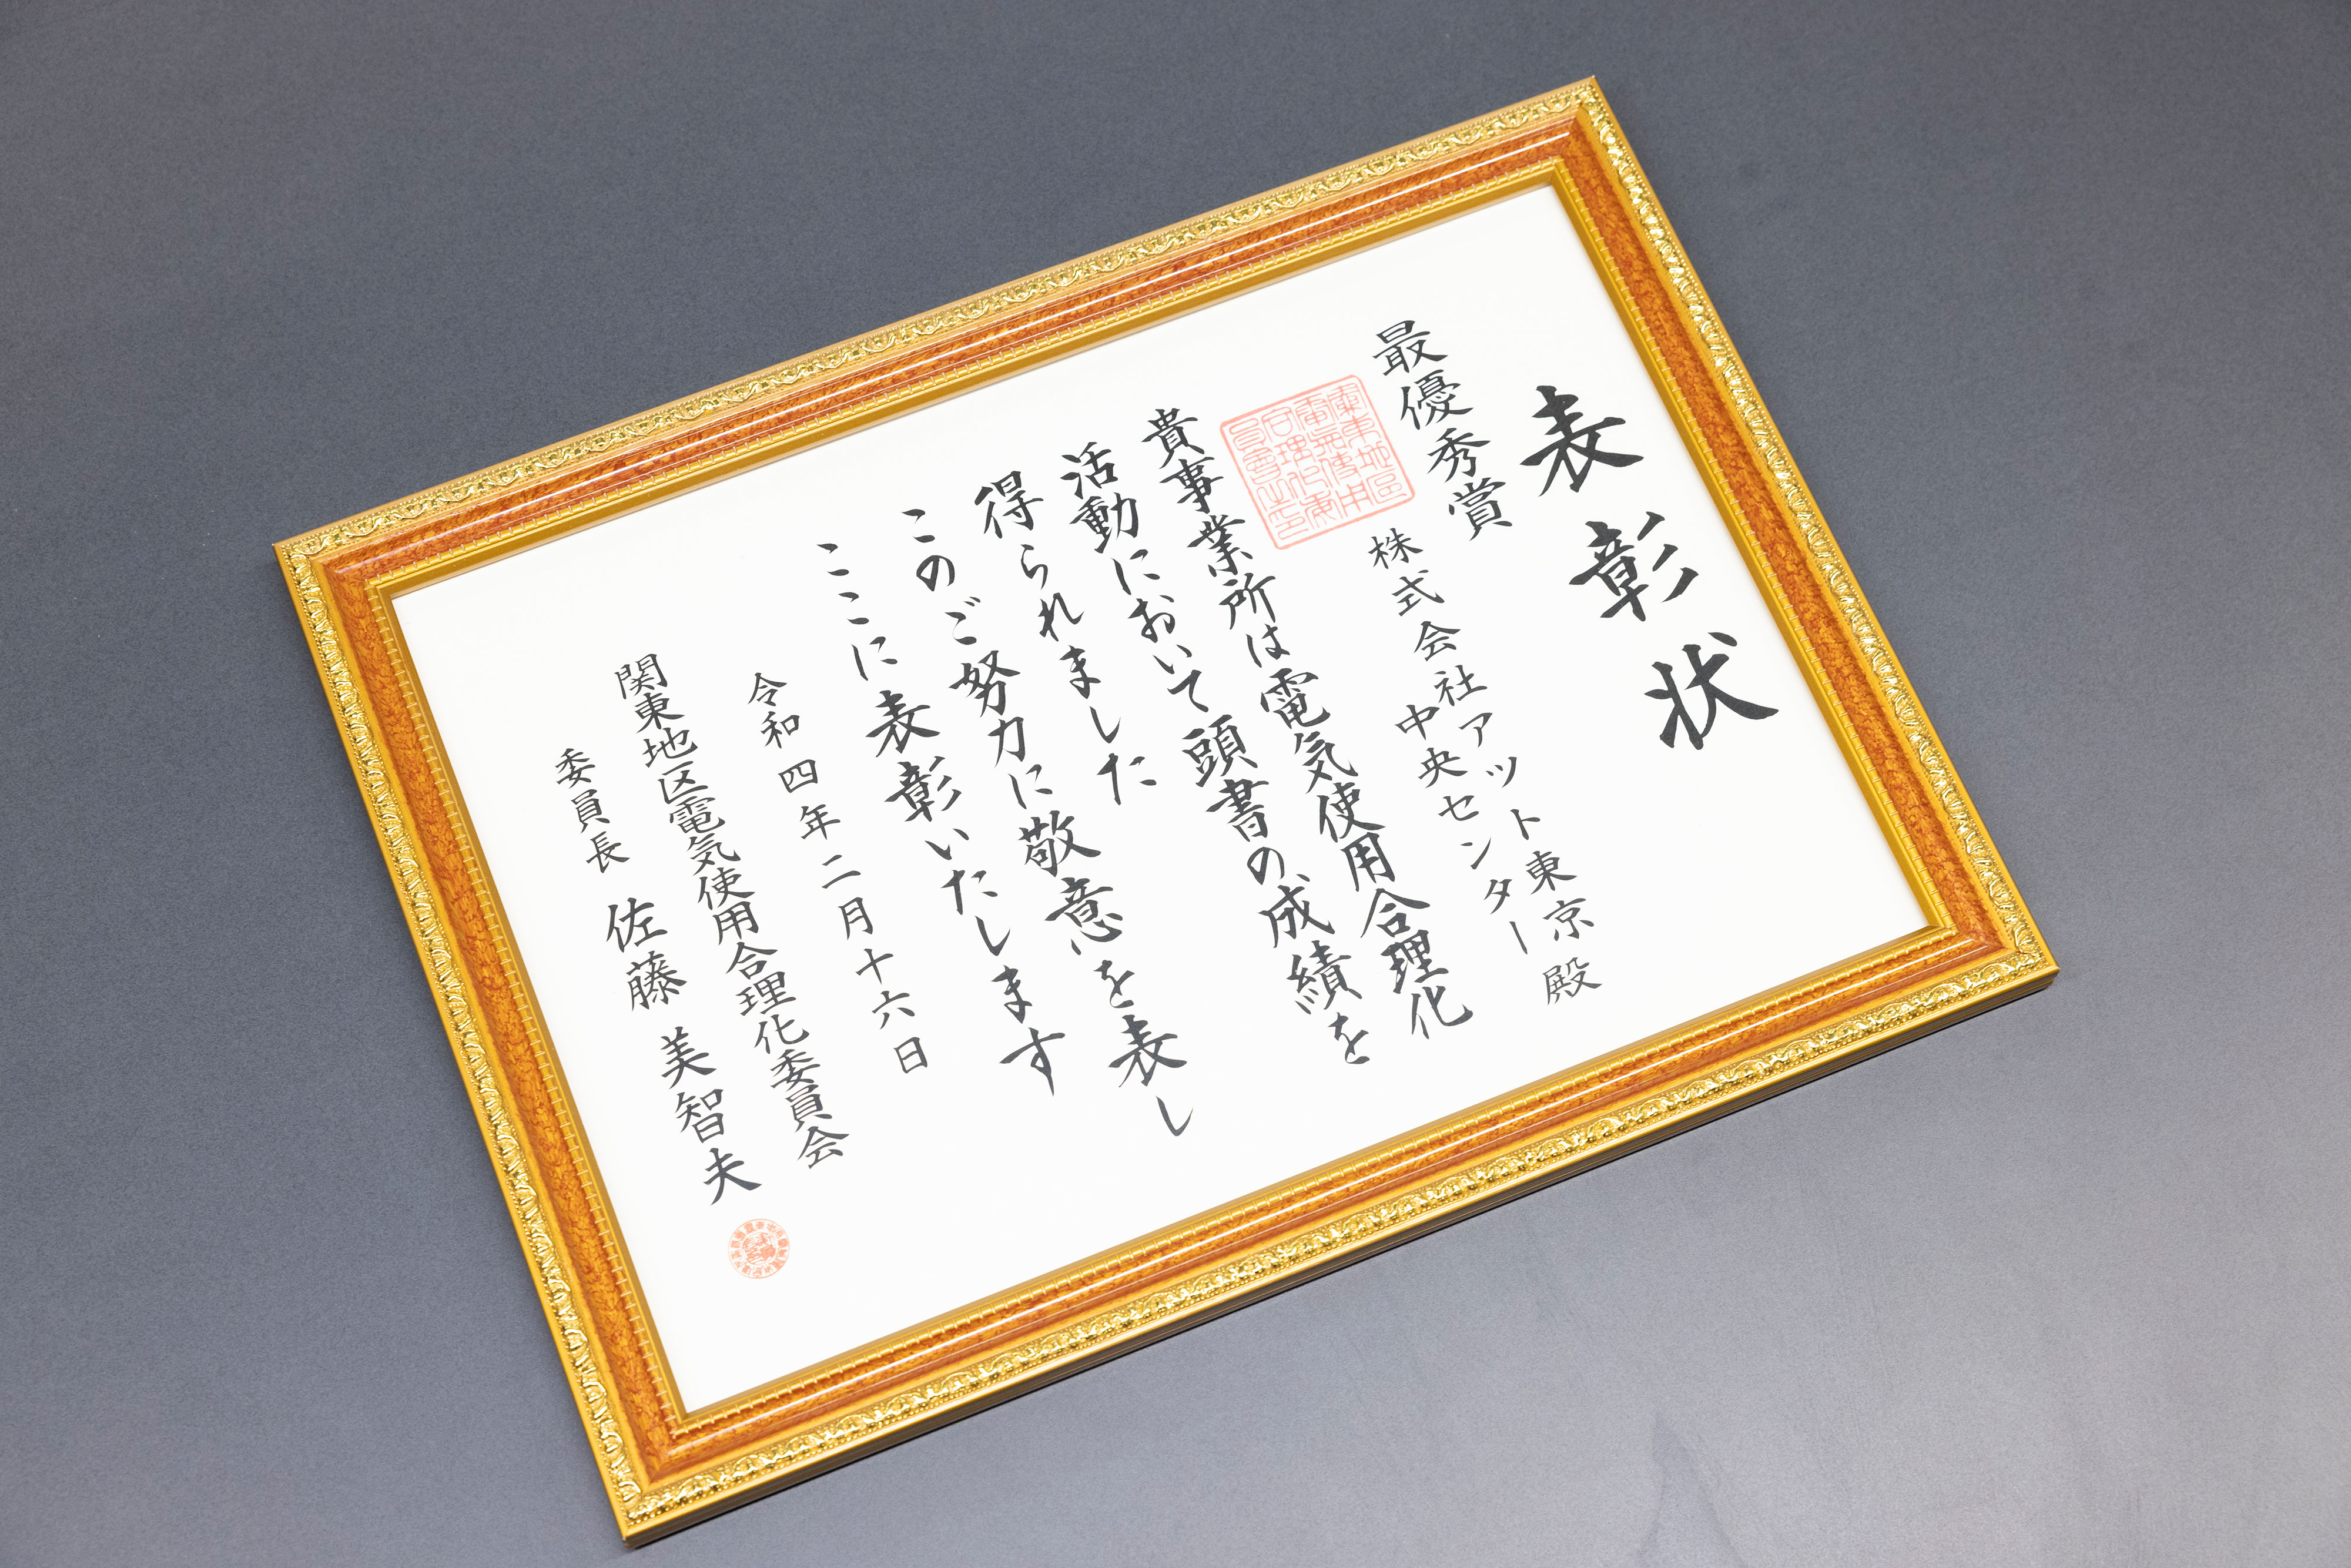 表彰状
最優秀賞
株式会社アット東京
中央センター殿
貴事業所は電気使用合理化
活動において頭書の成績を
得られました
このご努力に敬意を表し
ここに表彰いたします
令和四年二月十六日
関東地区電気使用合理化委員会
委員長 佐藤 美智夫